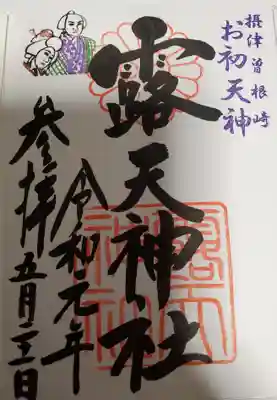 摂津曽根崎
お初天神
露天神社
令和元年
参拝 五月二十三日